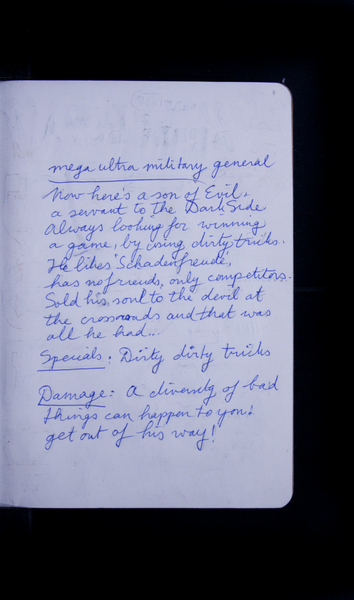 mega ultra military general
Now here's a son of Evil.
a servant to the Dark Side
Always looking for winning
a game, by using dirty tricks.
He likes 'Schadenfreude',
has no friends, only competitors.
Sold his soul to the devil at
the crossroads and that was
all he had...
Specials: Dirty dirty tricks
Damage: A diversety of bad
things can happen to you!
get out of his way!